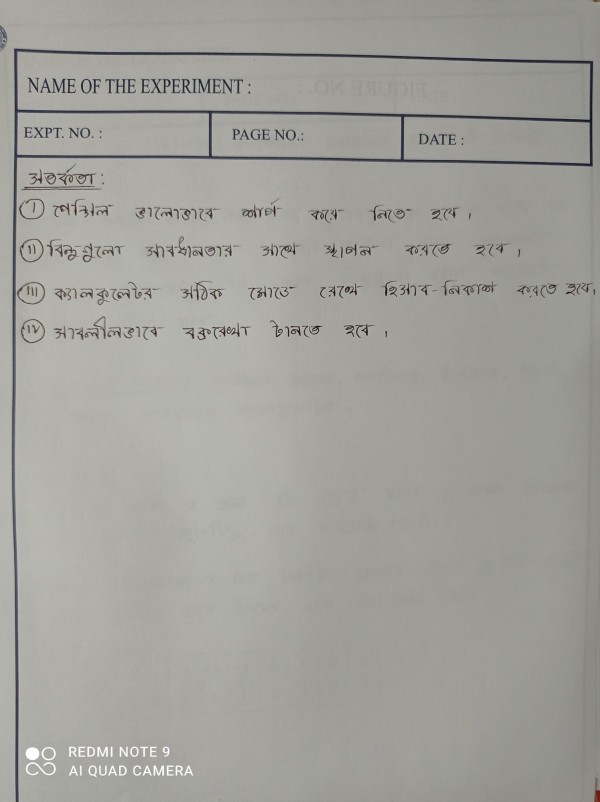 NAME OF THE EXPERIMENT :
EXPT. NO. :
PAGE NO.:
DATE :
সতর্কতা :
(i) পেন্সিল ভালোভাবে শার্প করে নিতে হবে।
(ii) বিন্দুগুলো সাবধানতার সাথে স্থাপন করতে হবে।
(iii) ক্যালকুলেটর সঠিক মোডে রেখে হিসাব-নিকাশ করতে হবে।
(iv) সাবলীলভাবে বক্ররেখা টানতে হবে।
REDMI NOTE 9
AI QUAD CAMERA